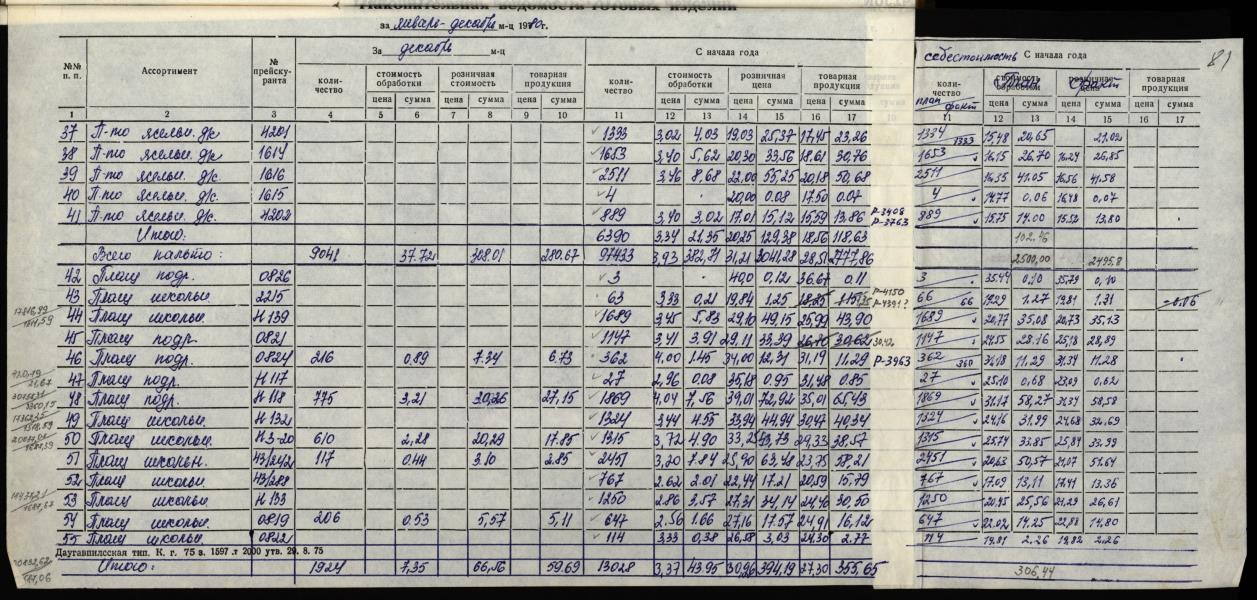 Накопительная ведомость готовых изделий
за январь-декабрь м-ц 1980 г.
За декабрь м-ц С начала года себестоимость С начала года 81
№№ п. п. Ассортимент № прейскуранта количество стоимость обработки розничная стоимость товарная продукция количество стоимость обработки розничная цена товарная продукция количество товарная продукция
цена сумма цена сумма цена сумма цена сумма цена сумма цена сумма план факт цена сумма цена сумма цена сумма
1 2 3 4 5 6 7 8 9 10 11 12 13 14 15 16 17 11 12 13 14 15 16 17
37 П-то ясельн. д/с 4201 1333 3,02 4.03 19,03 25,37 17,45 23,26 1334 1333 15,48 20,65 21,02
38 П-то ясельн. д/с 1614 1653 3,40 5,62 20,30 33,56 18,61 30,76 1653 16,15 26.70 16,24 26,85
39 П-то ясельн. д/с 1616 2511 3,46 8,68 22,00 55,25 20,18 50,68 2511 16,35 41.05 16,56 41,58
40 П-то ясельн. д/с 1615 4 20,00 0.08 17,50 0.07 4 14,77 0,06 16,48 0,07
41 П-то ясельн. д/с 4202 889 3,40 3,02 17,01 15,12 15,59 13,86 Р-3408 Р-3763 889 15,75 14,00 15,52 13,80
Итого: 6390 3,34 21,35 20,25 129,38 18,56 118,63 102.46
Всего пальто: 9041 37.72 308.01 280.67 97433 3,93 382,71 31,21 3041,28 28,51 2777,86 2500,00 2495.8
42 Плащ подр. 0826 3 40,0 0,12 36,67 0.11 3 35,44 0,10 35,79 0,10
43 Плащ школьн 2215 63 3,33 0,21 19,84 1.25 18,25 Р-4150 Р-4391? 66 66 19,29 1.27 19,81 1.31 -0.06
44 Плащ школьн. Н 139 1689 3,45 5,83 29,10 49,15 25,99 43,90 1689 20,77 35,08 20,73 35,13
45 Плащ подр. 0821 1147 3,41 3.91 29,11 33,39 26.70 30.62 30.42 1147 24,55 28.16 25,18 28,89
46 Плащ подр. 0824 216 0,89 7.34 6.73 362 4,00 1.45 34,00 12,31 31,19 11.29 Р-3963 362 360 31,18 11,29 31,34 11.28
47 Плащ подр. Н 117 27 2,96 0.08 35,18 0.95 31,48 0.85 27 25,10 0,68 23,09 0,62
48 Плащ подр. Н 118 775 3,21 30,26 27,15 1869 4,04 7,56 39,01 72,92 35,01 65,43 1869 31,17 58,27 31,34 58,58
49 Плащ школьн. Н 132 1324 3,44 4.55 33,94 44,94 30,47 40,34 1324 24,16 31.99 24,68 32.69
50 Плащ школьн. Н 3-20 610 2,28 20,29 17.85 1315 3,72 4.90 29,33 38,57 1315 25,74 33,85 25,84 33,99
51 Плащ школьн. 43/242 117 0.44 3.10 2.85 2451 3,20 7.84 25,90 63,48 23,75 58,21 2451 20,63 50,57 21,07 51.64
52 Плащ школьн 43/288 767 2.62 2.01 22,44 17.21 20,59 15.79 767 17,09 13,11 17,41 13,36
53 Плащ школьн Н 133 1250 2.86 3.57 27,31 34,14 24,40 30,50 1250 20,45 25,56 21,29 26,61
54 Плащ школьн. 0819 206 0.53 5,57 5,11 647 2.56 1.66 27,16 17.57 24,91 16,12 647 22,02 14,25 22,88 14,80
55 Плащ школьн. 0822 114 3,33 0,38 26,58 3,03 24,30 2.77 114 19,81 2.26 19,82 2.26
Даугавпилсская тип. К. г. 75 з. 1597 .т 2000 утв. 29. 8. 75
Итого: 1924 7,35 66,56 59.69 13028 3,37 43.95 30,26 394,19 27,30 355,65 306,44